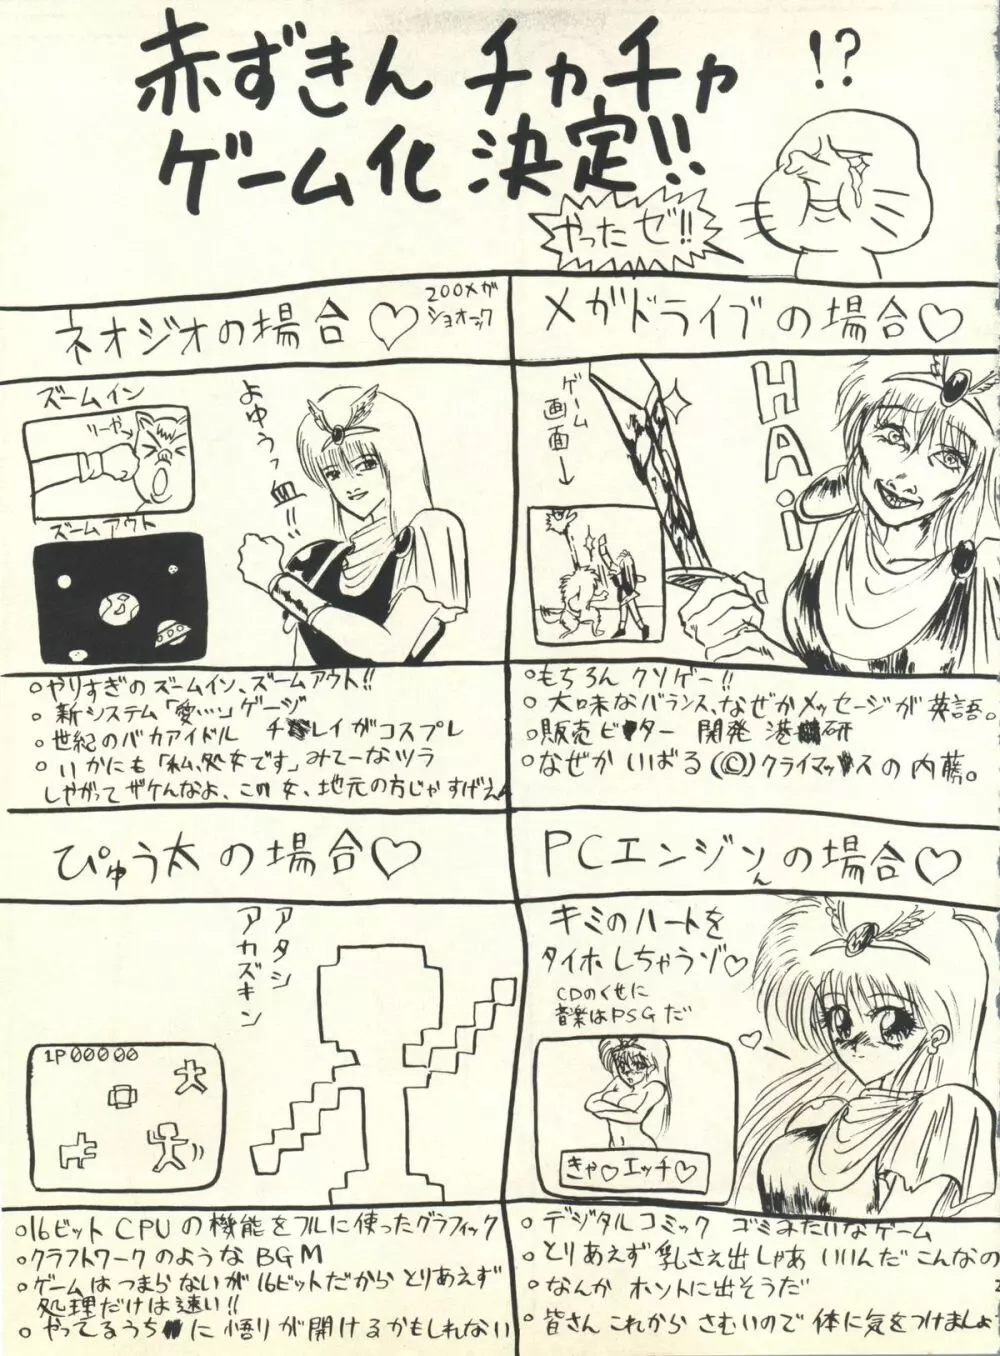 赤ずきん チャチャ !?
ゲーム化 決定!!
やったゼ!!
ネオジオの場合♡
200メガ
ショオーック
ズームイン
リーヤ→
ズームアウト
よゆうっ血!!
○やりすぎのズームイン、ズームアウト!!
○新システム「愛…」ゲージ
○世紀のバカアイドル チ レイがコスプレ
○いかにも「私、処女です」みてーなツラ
しやがってザケんなよ、この女、地元の方じゃすげえ
メガドライブの場合♡
ゲーム
画面↓
HAi
○もちろん クソゲー!!
○大味なバランス、なぜかメッセージが英語。
○販売ビ ター 開発 港 研
○なぜかいばる(©)クライマックスの内藤。
ぴゅう太の場合♡
アタシ
アカズキン
1P00000
○16ビットCPUの機能をフルに使ったグラフィック
○クラフトワークのようなBGM
○ゲームはつまらないが16ビットだからとりあえず
処理だけは速い!!
○やってるうちに悟りが開けるかもしれない
PCエンジンの場合♡
ん
キミのハートを
タイホしちゃうゾ♡
CDのくせに
音楽はPSGだ
きゃ♡エッチ♡
○デジタルコミック ゴミみたいなゲーム
○とりあえず乳さえ出しゃあいいんだこんなの
○なんかホントに出そうだ
○皆さんこれからさむいので体に気をつけましょ